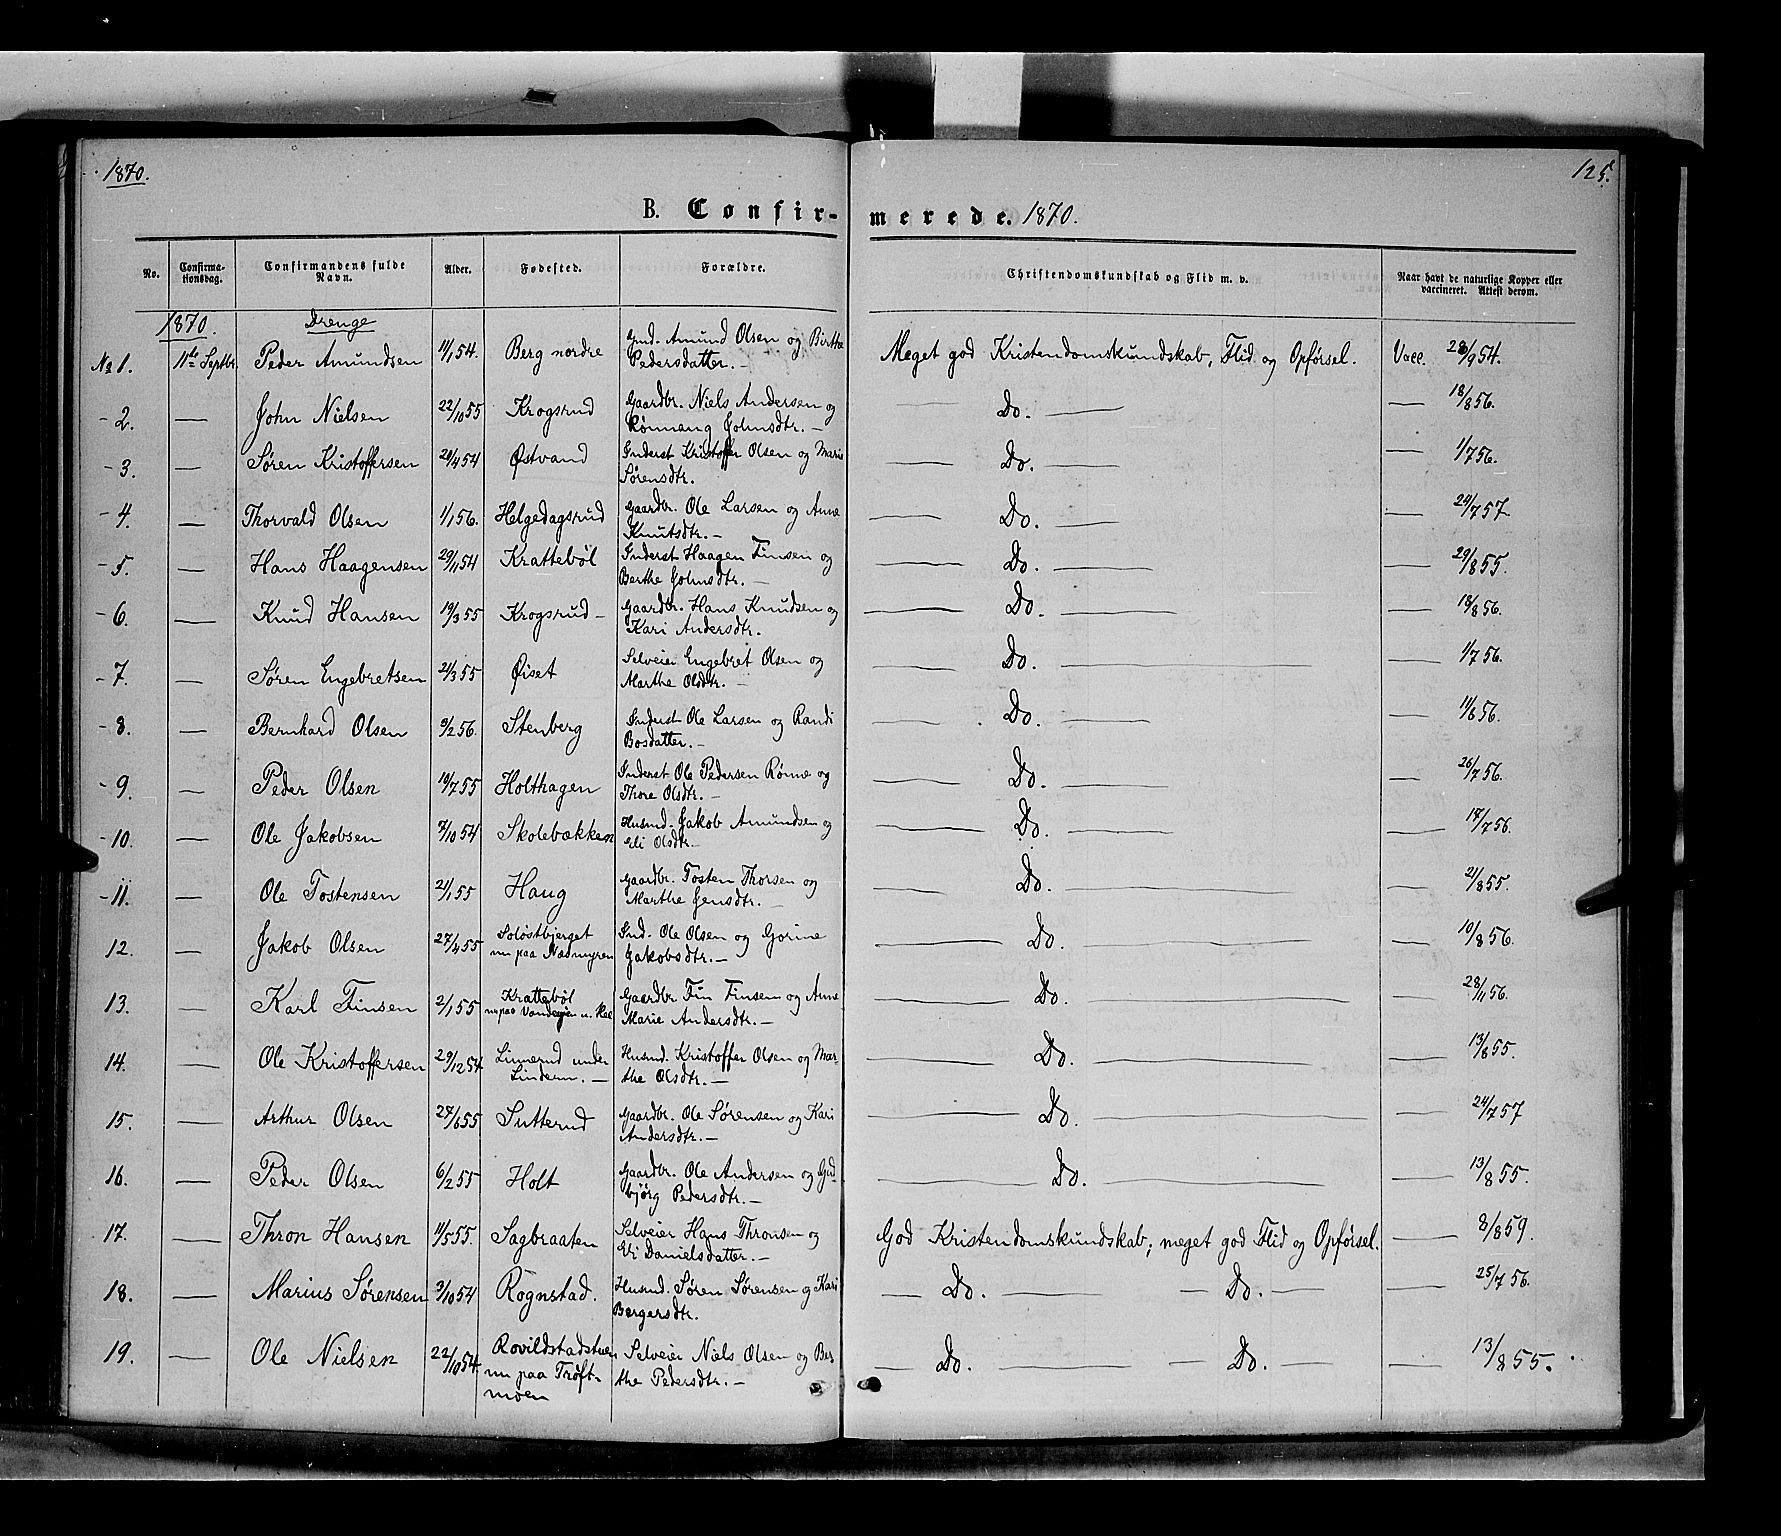 1870.
125.
B. Confir-merede. 1870.
No. Confirma-tionsdag. Confirmandens fulde Navn. Alder. Fødested. Forældre. Christendomskundskab og Flid m. v. Naar havt de naturlige Kopper eller vaccineret. Attest derom.
1870. Drenge
No 1. 11te Septbr. Peder Amundsen 11/1 54. Berg nordre Ind. Amund Olsen og Birthe Meget god Kristendomskundskab, Flid og Opførsel. Vacc. 28/9 54.
Pedersdatter. —
- 2. — John Nielsen 22/10 55 Krogsrud Gaardbr. Niels Andersen og — Do. — — 18/8 56.
Rønnaug Johnsdtr. —
- 3. — Søren Kristoffersen 28/4 54 Østvand Inderst Kristoffer Olsen og Marie — Do. — — 1/7 56.
Sørensdtr.
- 4. — Thorvald Olsen 1/1 56. Helgedagsrud Gaardbr. Ole Larsen og Anne — Do. — — 24/7 57.
Knutsdtr. —
- 5. — Hans Haagensen 29/11 54 Krattebøl Inderst Haagen Finsen og — Do. — — 29/8 55.
Berthe Johnsdtr. —
- 6. — Knud Hansen 19/3 55 Krogsrud — Gaardbr. Hans Knudsen og — Do. — — 18/8 56.
Kari Andersdtr.
- 7. — Søren Engebretsen 21/3 55 Øiset Selveier Engebret Olsen og — Do. — — 1/7 56.
Marthe Olsdtr. —
- 8. — Bernhard Olsen 9/2 56. Stenberg Inderst Ole Larsen og Randi — Do. — — 11/8 56.
Bosdatter. —
- 9. — Peder Olsen 10/7 55 Holthagen Inderst Ole Pedersen Rønne og — Do. — — 26/7 56.
Thore Olsdtr. —
- 10. — Ole Jakobsen 7/10 54 Skolebækken Husmd. Jakob Amundsen og — Do. — — 17/7 56.
Eli Olsdtr. —
- 11. — Ole Tostensen 21/1 55 Haug Gaardbr. Tosten Thorsen og — Do. — — 21/8 55.
Marthe Jensdtr. —
12. — Jakob Olsen 27/4 55 Soløstbjerget Ind. Ole Olsen og Gorine — Do. — — 10/8 56.
nu paa Nødmyren Jakobsdtr. —
13. — Karl Finsen 2/1 55 Krattebøl Gaardbr. Fin Finsen og Anne — Do. — — 28/11 56.
nu paa Marie Andersdtr. —
14. — Ole Kristoffersen 29/12 54 Linnerud under Husmd. Kristoffer Olsen og Mar- — Do. — — 13/8 55.
Lindern. — the Olsdtr. —
15. — Arthur Olsen 27/6 55 Sutterud Gaardbr. Ole Sørensen og Kari — Do. — — 24/7 57
Andersdtr. —
16. — Peder Olsen 6/2 55 Holt Gaardbr. Ole Andersen og Gud- — Do. — — 13/8 55.
bjørg Pedersdtr. —
17. — Thron Hansen 11/5 55. Sagbraaten Selveier Hans Thronsen og God Kristendomskundskab; meget god Flid og Opførsel. — 8/8 59.
Eli Danielsdatter. —
18. — Marius Sørensen 3/10 54 Rognstad. Husmd. Søren Sørensen og Kari — Do. — — Do. — — 25/7 56.
Børgersdtr.
19. — Ole Nielsen 22/10 54. Rovildstadstuen Selveier Niels Olsen og Ber — Do. — — Do. — — 13/8 55.
nu paa Trøft- the Pedersdtr. —
moen